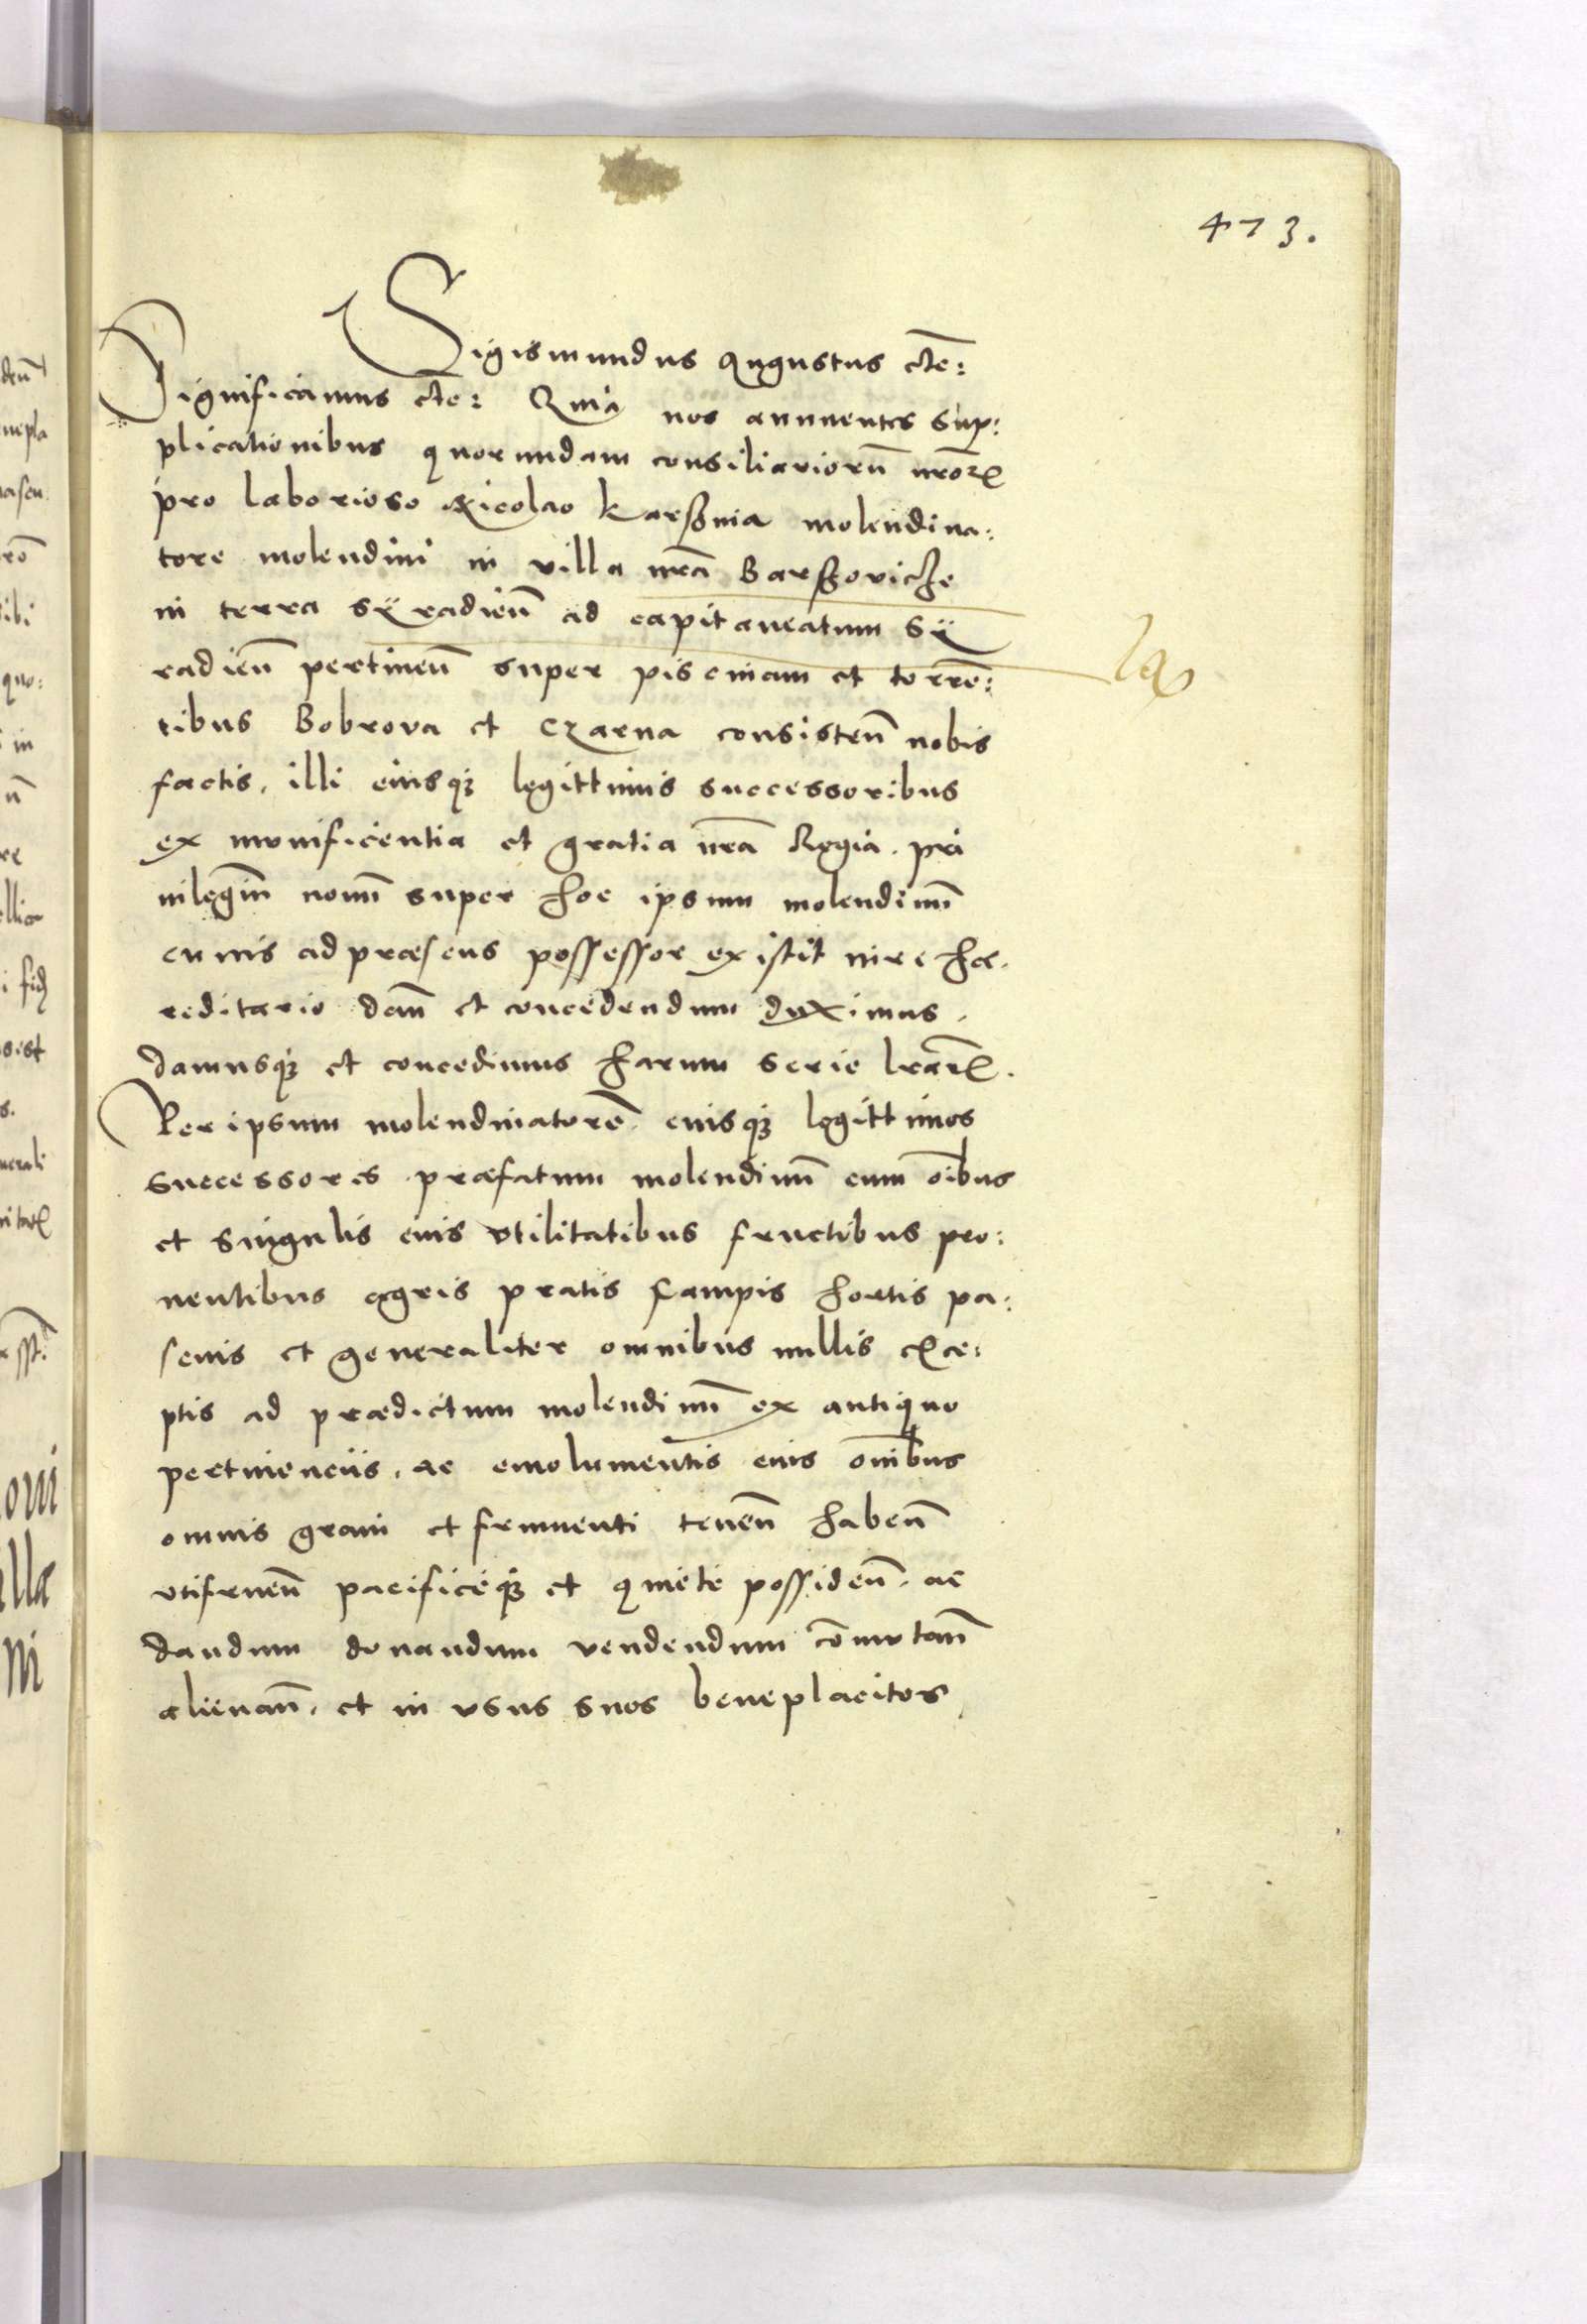 473.
Sigismundus Augustus etc̃:
Significamus etc̃: Quia nos annuentes sup:
plicationibus quorundam consiliariorũ nrõrum
pro laborioso Nicolao Karssnia molendina:
tore molendini in villa nrã Barssoviche
in terra Sÿradieñ ad capitaneatum Sÿ
radieñ pertineñ super piscinam et torrẽ:
tibus Bobrova et Czarna consisteñ nobis
factis, illi eiusq3 legittimis successoribus
ex munificentia et gratia nrã Regia. pri
uilegiũ nouũ super hoc ipsum molendinũ
cuius ad præsens possessor existit iure hæ.
reditario dañ et concedendum duximus.
damusq3 et concedimus harum serie lrãrum.
Per ipsum molendinatorẽ eiusq3 legittimos
successores præfatum molendinũ cum oĩbus
et singulis eius vtilitatibus fructibus pro:
uentibus agris pratis campis hortis pa:
scuis et generaliter omnibus nullis exce:
ptis ad prædictum molendinũ ex antiquo
pertinenciis, ac emolumentis eius oñibus
omnis grani et frumenti teneñ habeñ
vtifrueñ pacificeq3 et quiete possideñ. ac
dandum donandum vendendum cõmutañ
alienañ. et in vsus suos beneplacitos